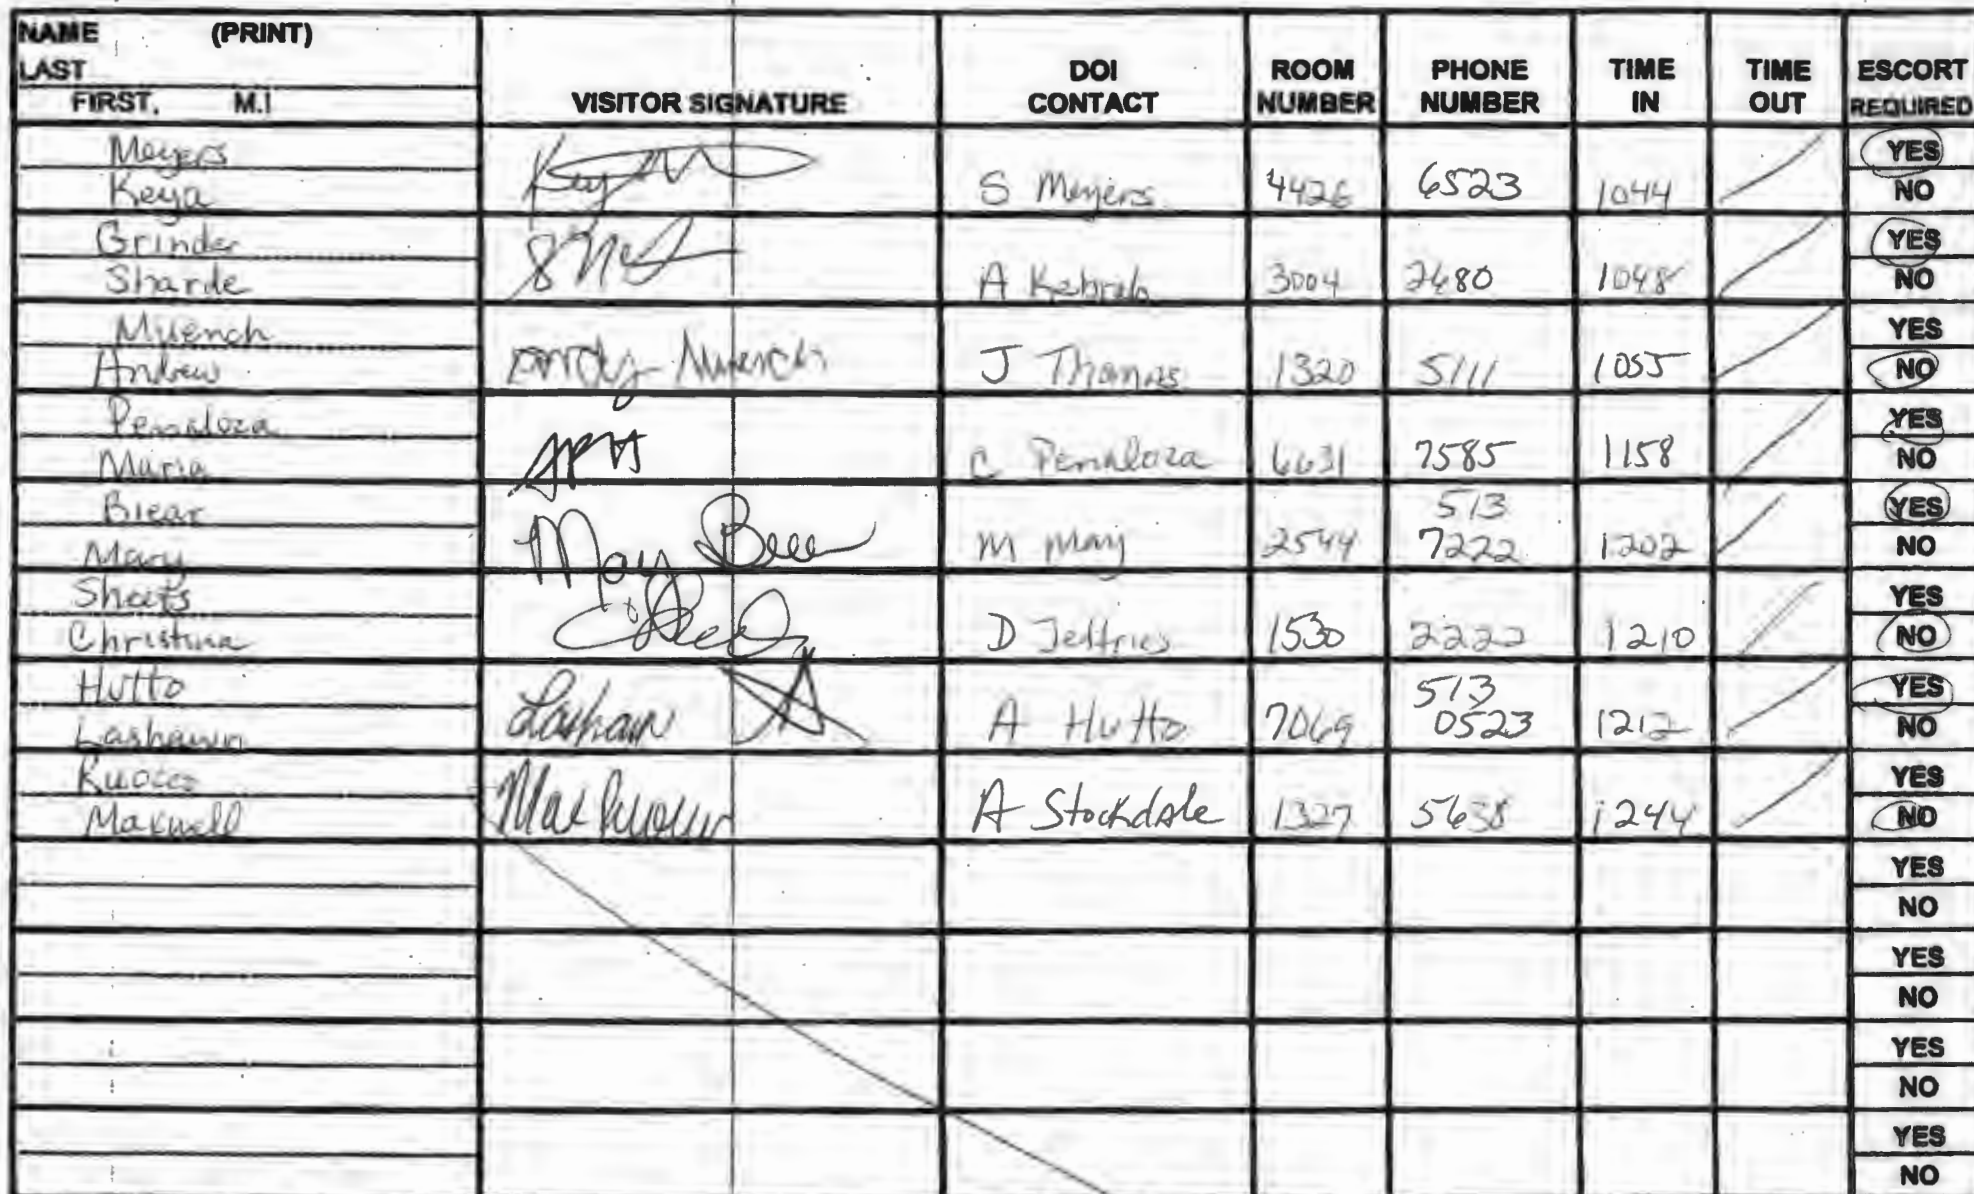 NAME (PRINT)
LAST
FIRST, M.I
VISITOR SIGNATURE
DOI
CONTACT
ROOM
NUMBER
PHONE
NUMBER
TIME
IN
TIME
OUT
ESCORT
REQUIRED
Meyers
Keya
S Meyers 4426 6523 1044
YES
NO
Grinder
Sharde
A 3004 2680 1048
YES
NO
Muench
Andrew
Andy Muench
J Thomas 1320 5111 1055
YES
NO
Penaloza
Maria
C Penaloza 6631 7585 1158
YES
NO
Brear
Mary
Mary
M May 2544 513
7222 1202
YES
NO
Sheets
Christina
D Jeffries 1530 2222 1210
YES
NO
Hutto
Lashawn
Lashawn
A Hutto 7069 513
0523 1212
YES
NO
Maxwell
Max
A Stockdale 1327 5638 1244
YES
NO
YES
NO
YES
NO
YES
NO
YES
NO